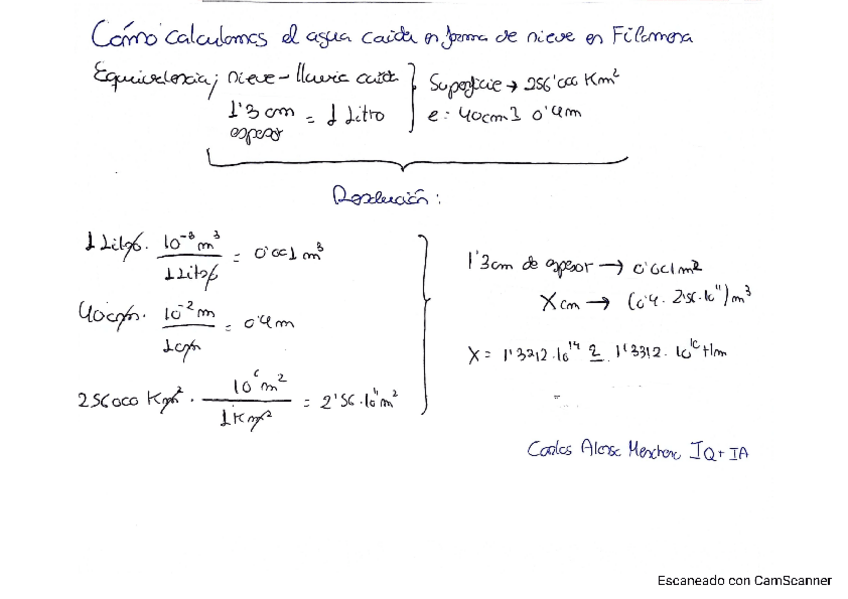 Cómo calculamos el agua caída en forma de nieve en Filomena
Equivalencia; nieve - lluvia caída
1'3 cm espesor = 1 Litro
Superficie → 256'000 Km²
e: 40cm } 0'4m
Resolución:
1 Litro · 10⁻³ m³ / 1 Litro = 0'001 m³
40 cm · 10⁻² m / 1 cm = 0'4m
256000 Km² · 10⁶ m² / 1 Km² = 2'56·10¹¹ m²
1'3cm de espesor → 0'001 m²
X cm → (0'4 · 2'56·10¹¹) m³
X = 1'3312·10¹⁴ 2 1'3312·10¹⁰ Hm
Carlos IQ + IA
Escaneado con CamScanner